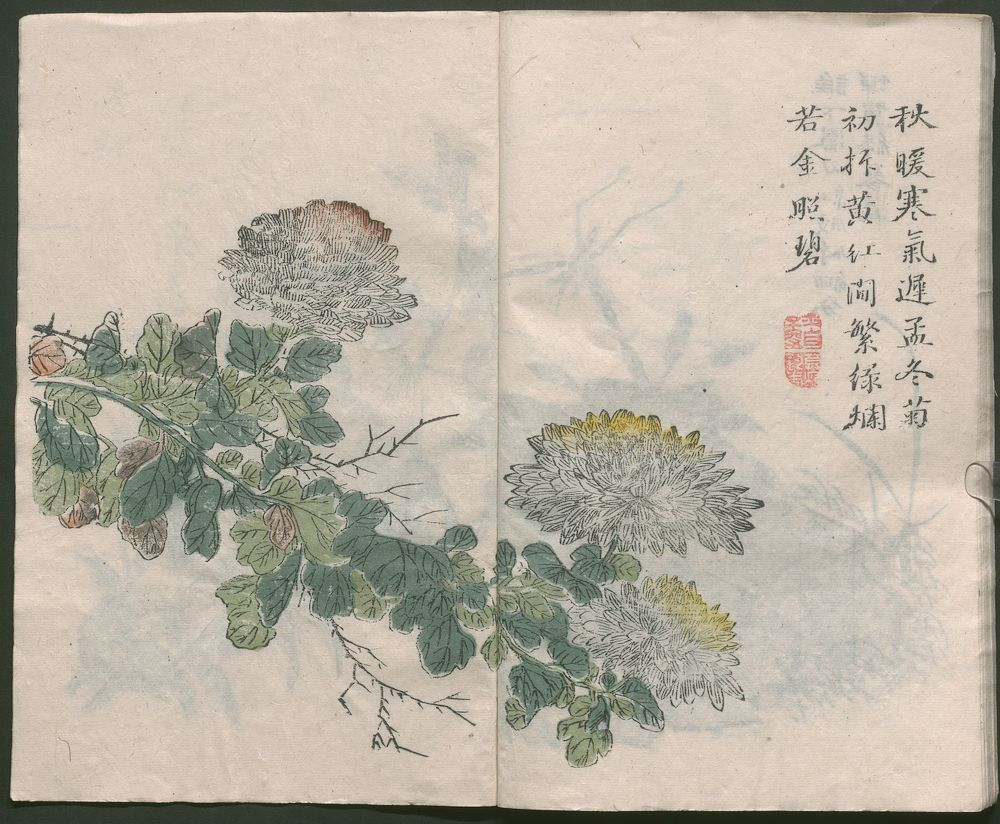 秋暖寒氣遲孟冬菊
初拆黄紅間繁綠爛
若金照碧